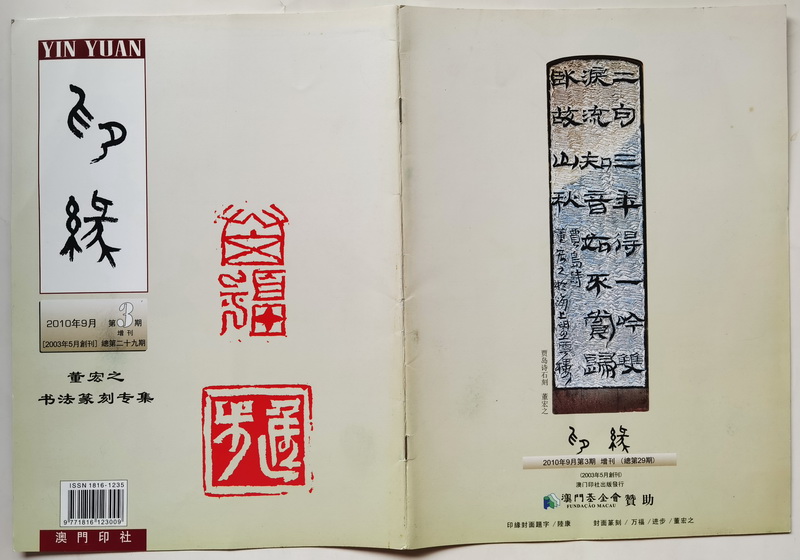 YIN YUAN
印緣
2010年9月 第3期
增刊
[2003年5月創刊] 總第二十九期
董宏之
书法篆刻专集
萬福
進步
ISSN 1816-1235
9 771816 123009
澳門印社
二句三年得一吟雙
淚流知音如不賞歸
卧故山秋
賈島詩
董宏之於海上
贾岛诗石刻 董宏之
印緣
2010年9月第3期 增刊 (總第29期)
(2003年5月創刊)
澳門印社出版發行
澳門基金會 贊助
FUNDAÇÃO MACAU
印緣封面題字/陸康 封面篆刻/万福/进步/董宏之